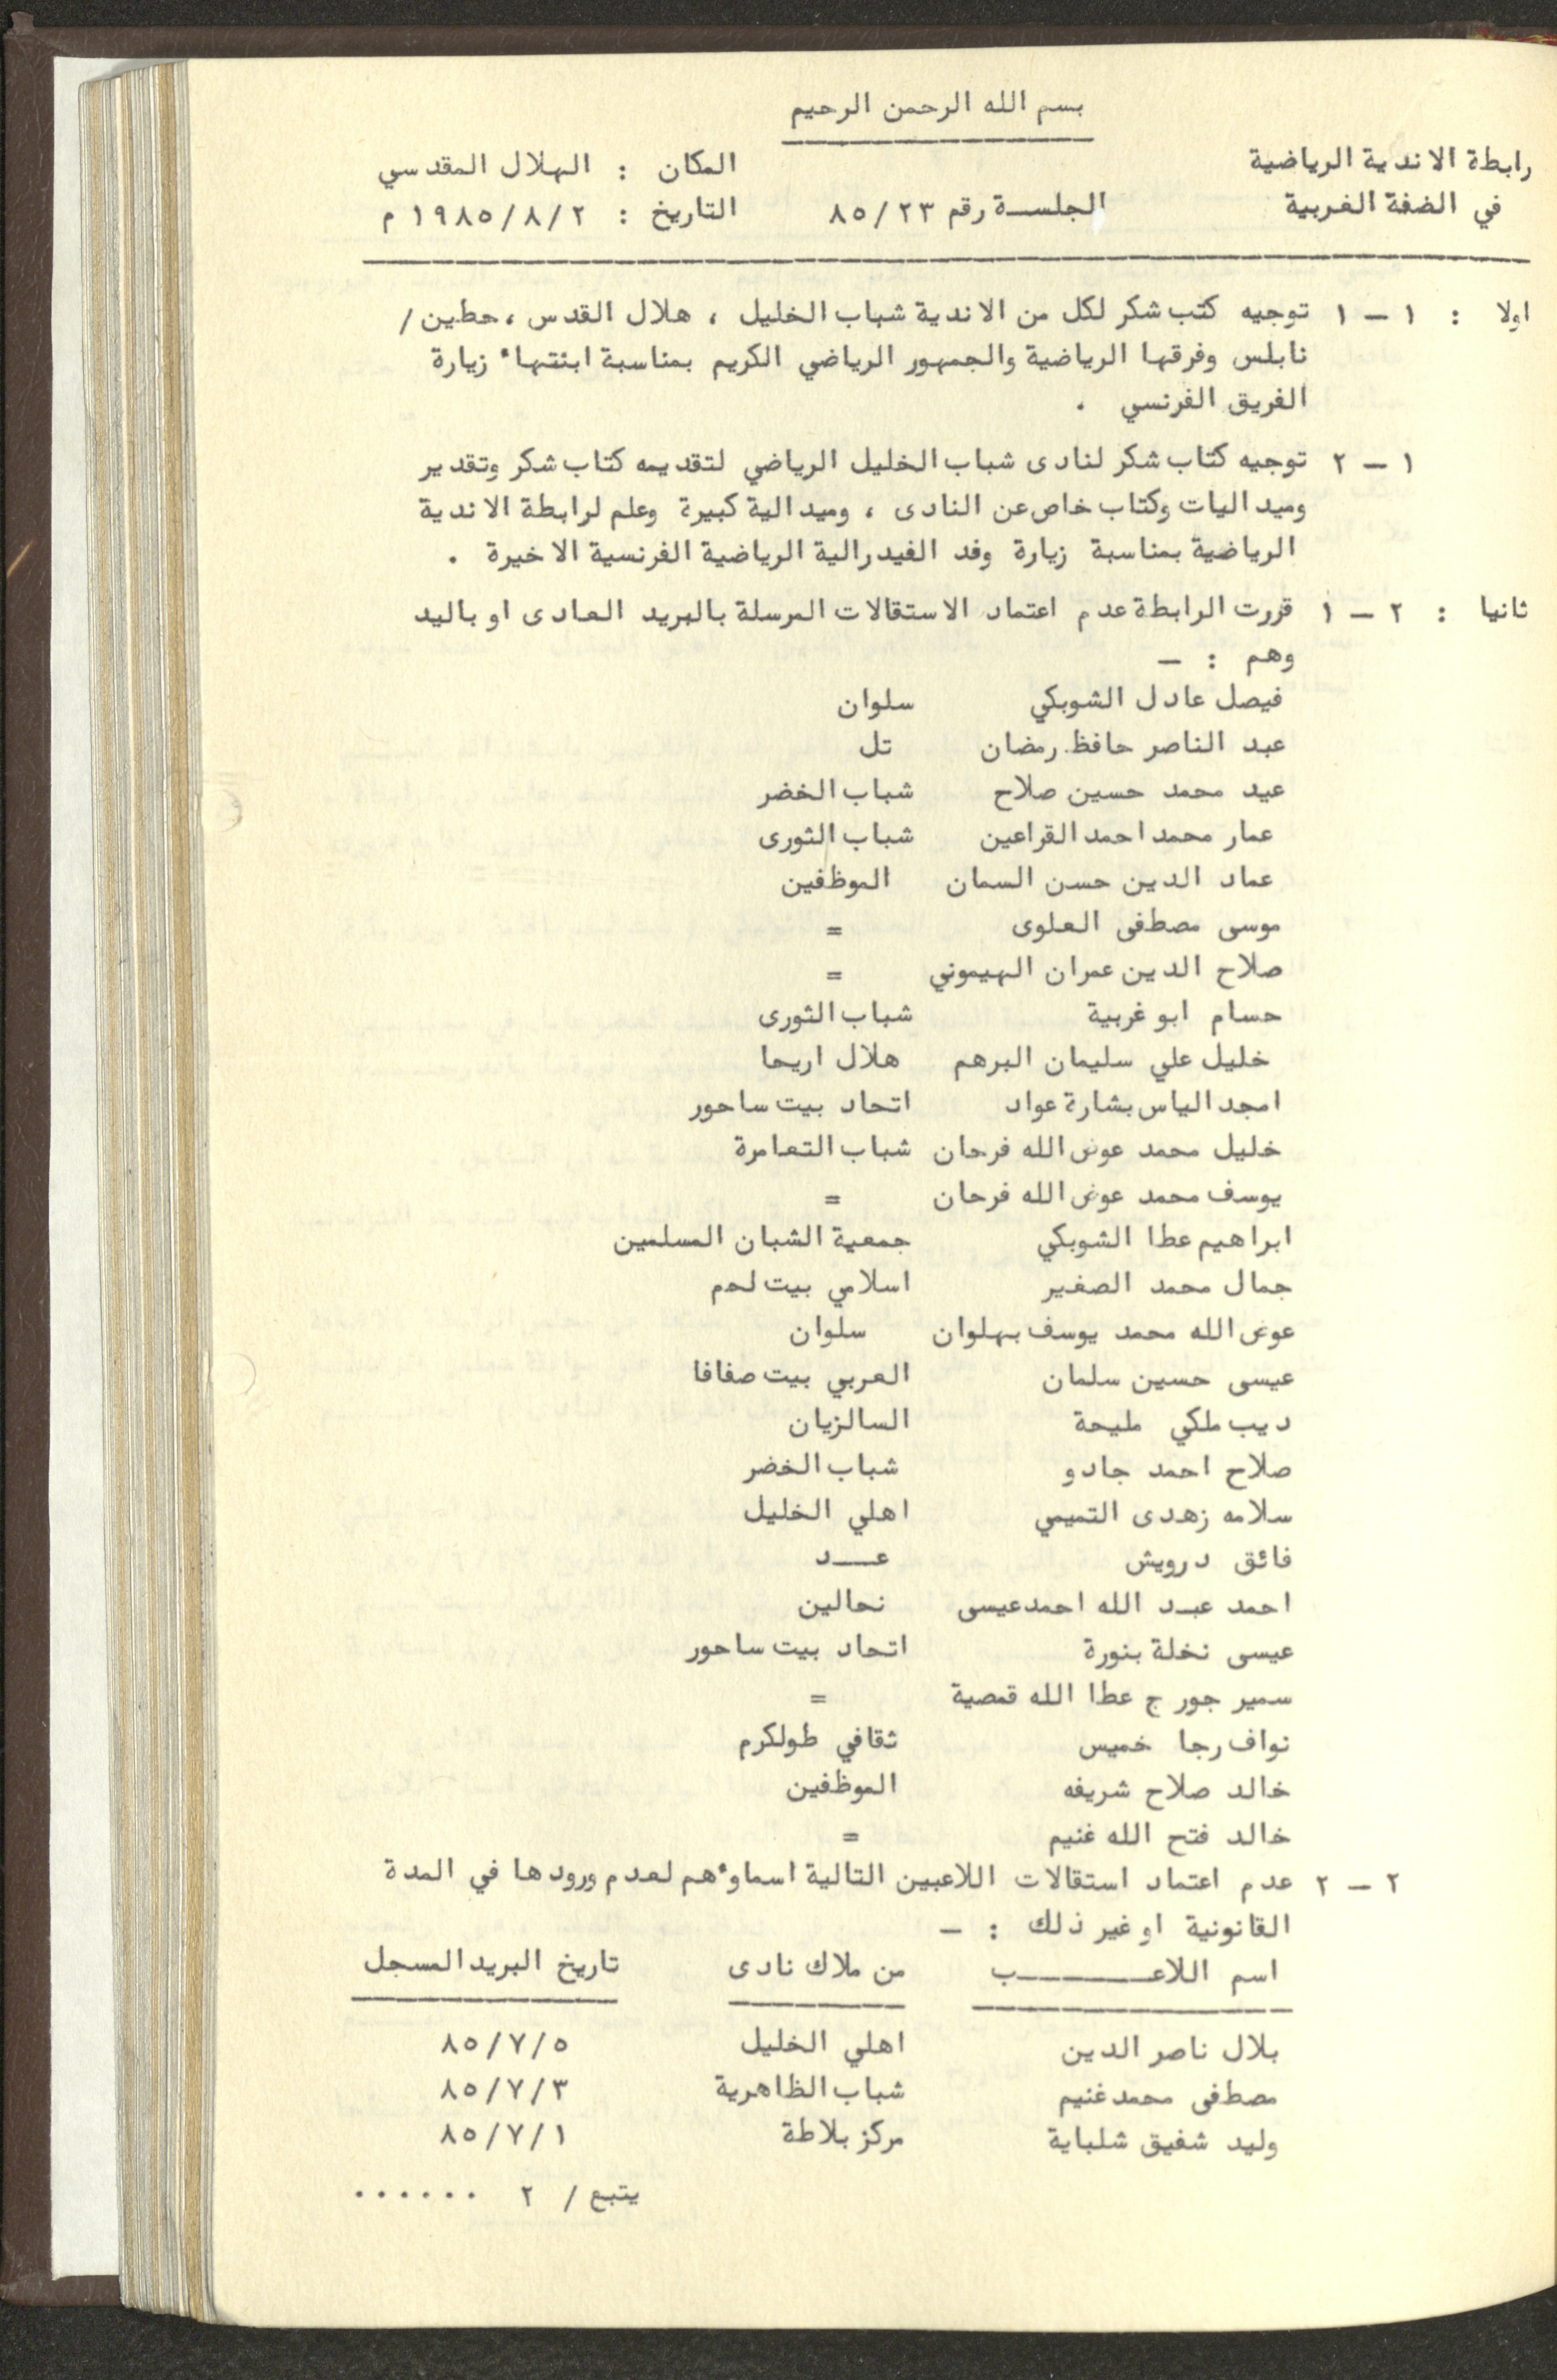 بسم الله الرحمن الرحيم
رابطة الاندية الرياضية المكان : الهلال المقدسي
في الضفة الغربية الجلسة رقم ٨٥/٢٣ التاريخ : ١٩٨٥/٨/٢ م
اولا : ١ – ١ توجيه كتب شكر لكل من الاندية شباب الخليل ، هلال القدس ، حطين /
نابلس وفرقها الرياضية والجمهور الرياضي الكريم بمناسبة ابنتهاء زيارة
الفريق الفرنسي .
١ – ٢ توجيه كتاب شكر لنادى شباب الخليل الرياضي لتقديمه كتاب شكر وتقدير
وميداليات وكتاب خاص عن النادى ، وميدالية كبيرة وعلم لرابطة الاندية
الرياضية بمناسبة زيارة وفد الفيدرالية الرياضية الفرنسية الاخيرة .
ثانيا : ٢ – ١ قررت الرابطة عدم اعتماد الاستقالات المرسلة بالبريد العادى او باليد
وهم : –
فيصل عادل الشوبكي سلوان
عبد الناصر حافظ رمضان تل
عيد محمد حسين صلاح شباب الخضر
عمار محمد احمد القراعين شباب الثورى
عماد الدين حسن السمان الموظفين
موسى مصطفى العلوى =
صلاح الدين عمران الهيموني =
حسام ابو غربية شباب الثورى
خليل علي سليمان البرهم هلال اريحا
امجد الياس بشارة عواد اتحاد بيت ساحور
خليل محمد عوض الله فرحان شباب التعامرة
يوسف محمد عوض الله فرحان =
ابراهيم عطا الشوبكي جمعية الشبان المسلمين
جمال محمد الصغير اسلامي بيت لحم
عوض الله محمد يوسف بهلوان سلوان
عيسى حسين سلمان العربي بيت صفافا
ديب ملكي مليحة السالزيان
صلاح احمد جادو شباب الخضر
سلامه زهدى التميمي اهلي الخليل
فائق درويش عــد
احمد عبد الله احمد عيسى نحالين
عيسى نخلة بنورة اتحاد بيت ساحور
سمير جورج عطا الله قمصية =
نواف رجا خميس ثقافي طولكرم
خالد صلاح شريفه الموظفين
خالد فتح الله غنيم =
٢ – ٢ عدم اعتماد استقالات اللاعبين التالية اسماوءهم لعدم ورودها في المدة
القانونية او غير ذلك : –
اسم اللاعــــــب من ملاك نادى تاريخ البريد المسجل
بلال ناصر الدين اهلي الخليل ٨٥/٧/٥
مصطفى محمد غنيم شباب الظاهرية ٨٥/٧/٣
وليد شفيق شلباية مركز بلاطة ٨٥/٧/١
يتبع / ٢ ......